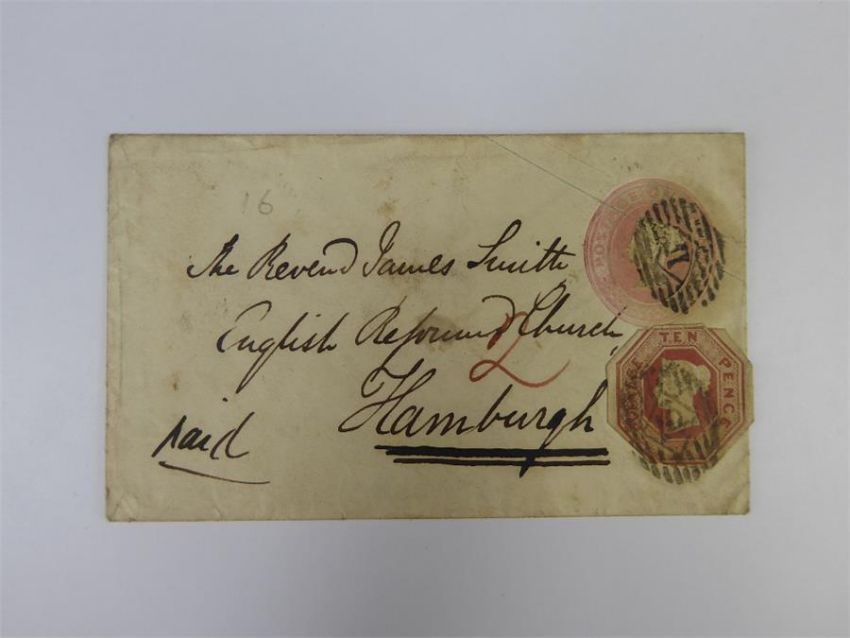 16
The Revend James Smith
English Reformd Church
Hamburgh
Paid
2
POSTAGE
POSTAGE TEN PENCE